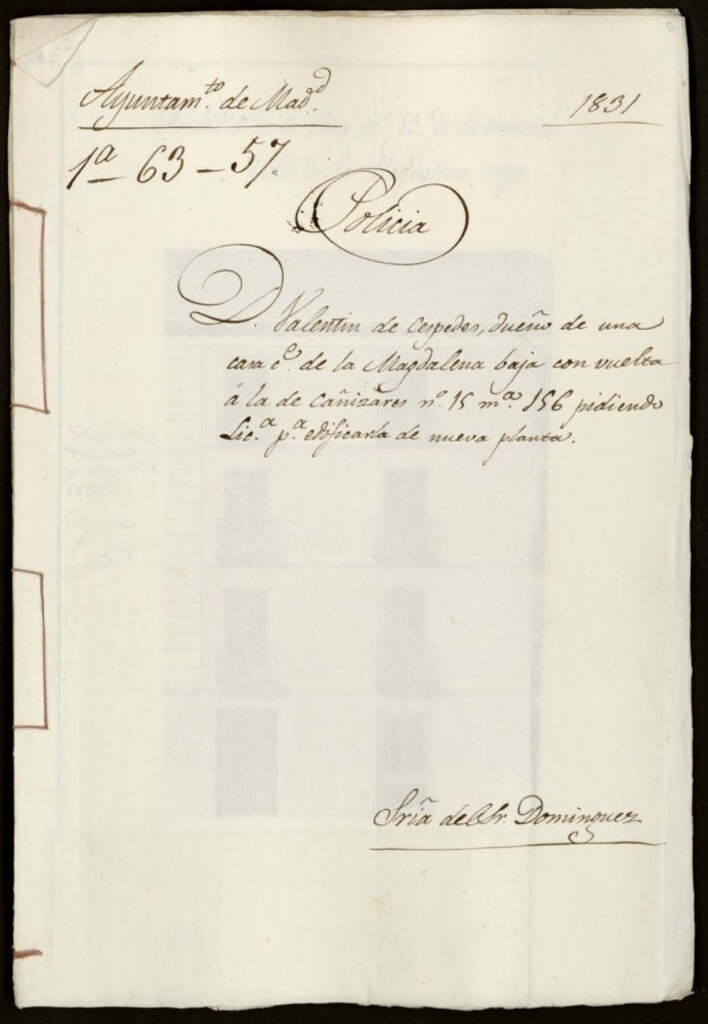 Ayuntam.to de Mad.d 1831
1a - 63 - 57.
Policia
D. Valentin de Cespedes, dueño de una
casa c.e de la Magdalena baja con vuelta
á la de Cañizares n.o 15 m.a 156 pidiendo
Lic.a p.a edificarla de nueva planta.
Sria del Sr. Dominguez